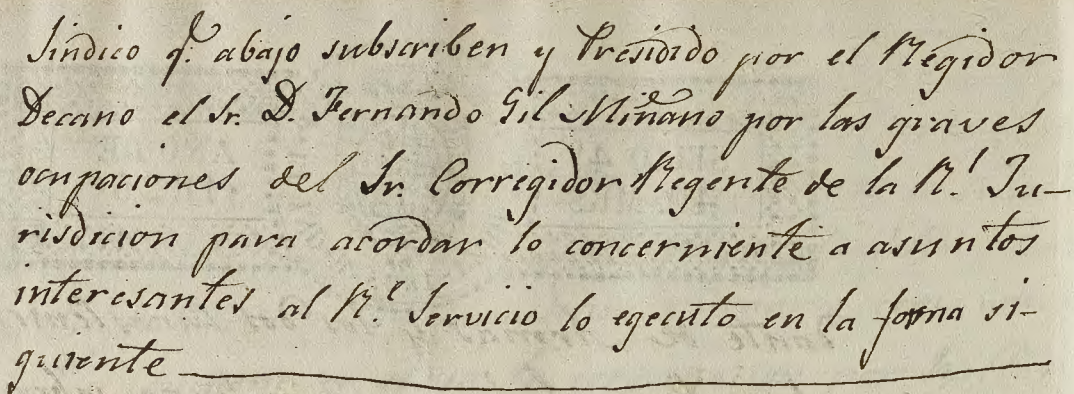 Sindico q.e abajo subscriben y Presidido por el Regidor
Decano el Sr. D. Fernando Gil Miñano por las graves
ocupaciones del Sr. Corregidor Regente de la R.l Ju-
risdicion para acordar lo concerniente a asuntos
interesantes al R.l Servicio lo egecuto en la forma si-
guiente